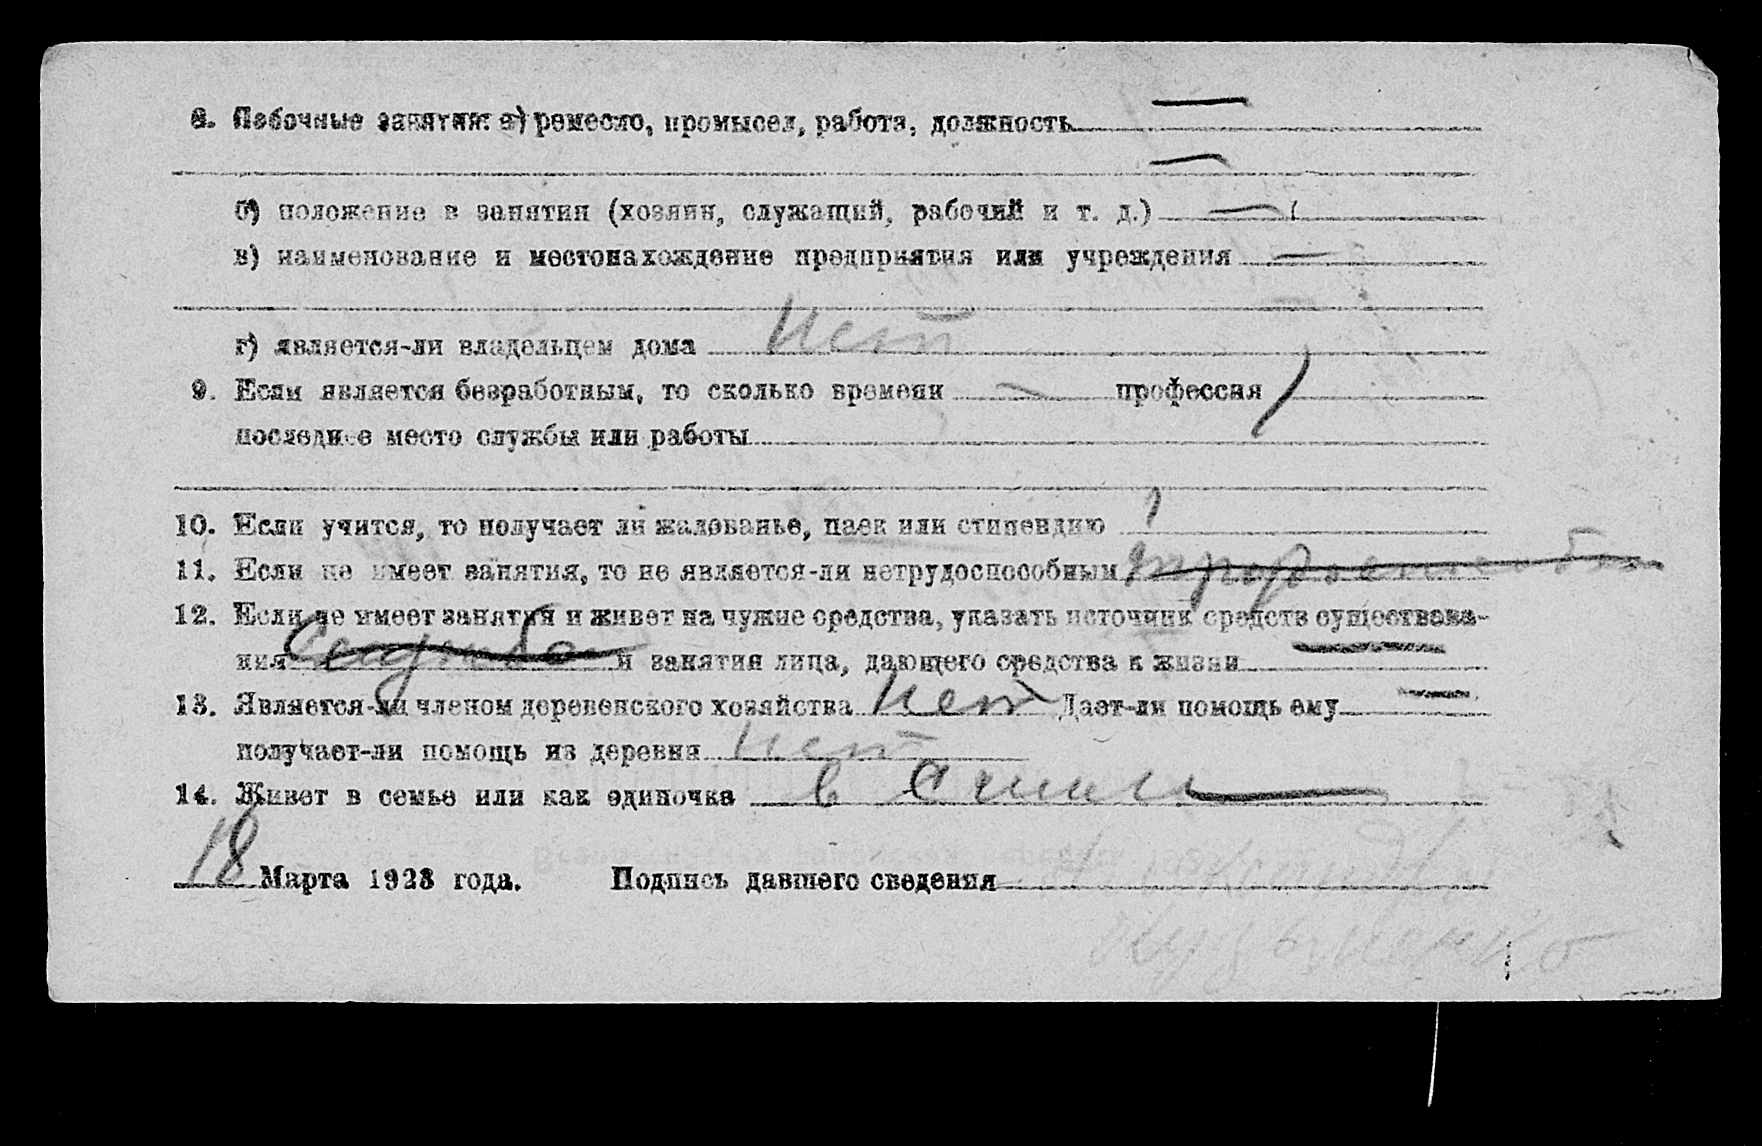 8. Побочные занятия: а) ремесло, промысел, работа, должность —
—
б) положение в занятии (хозяин, служащий, рабочий и т. д.) —
в) наименование и местонахождение предприятия или учреждения —
г) является-ли владельцем дома нет
9. Если является безработным, то сколько времени — профессия
последнее место службы или работы
10. Если учится, то получает ли жалованье, паек или стипендию
11. Если не имеет занятия, то не является-ли нетрудоспособным
12. Если не имеет занятия и живет на чужие средства, указать источник средств существова-
ния служба и занятия лица, дающего средства к жизни —
13. Является-ли членом деревенского хозяйства нет Дает-ли помощь ему —
получает-ли помощь из деревни нет
14. Живет в семье или как одиночка в семье
18 Марта 1923 года. Подпись давшего сведения